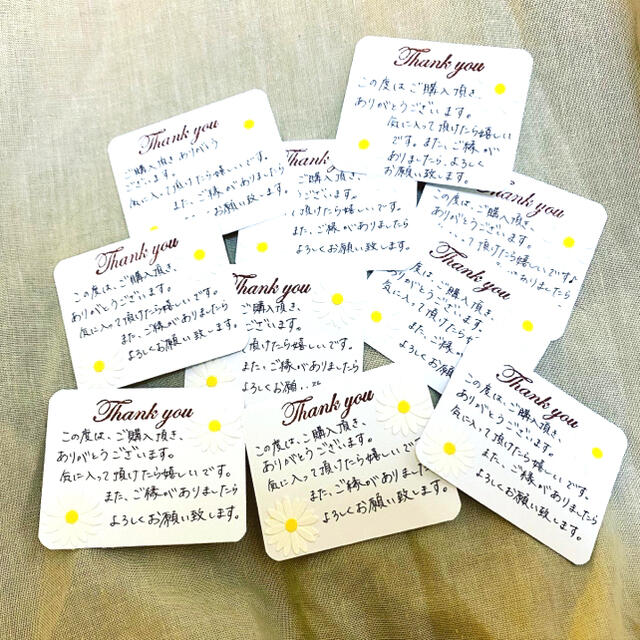 Thank you
この度は、ご購入頂き、
ありがとうございます。
気に入って頂けたら嬉しい
です。また、ご縁が
ありましたら、よろしく
お願い致します。
Thank you
ご購入頂き ありがとう
ございます。
気に入って頂けたら嬉しいです。
また、ご縁がありましたら
お願い致します。
Thank
ご購入頂き、
うございます。
頂けたら嬉しいです。
また、ご縁がありましたら
よろしくお願い致します。
Thank you
この度は、ご購入頂き、
ありがとうございます。
って頂けたら嬉しいです♪
ありましたら
Thank you
この度は、ご購入頂き、
ありがとうございます。
気に入って頂けたら嬉しいです。
また、ご縁がありましたら
よろしくお願い致します。
Thank you
度は、ご購入頂き、
がとうございます。
に入って頂けたら
また、ご縁
よろしく
ご購入頂き、
ございます。
頂けたら嬉しいです。
また、ご縁がありましたら
よろしくお願
Thank you
この度は、ご購入頂き、
ありがとうございます。
気に入って頂けたら嬉しいです。
また、ご縁がありましたら
よろしくお願い致します。
Thank you
この度は、ご購入頂き、
ありがとうございます。
気に入って頂けたら嬉しいです。
また、ご縁がありましたら
よろしくお願い致します。
Thank you
この度は、ご購入頂き、
ありがとうございます。
気に入って頂けたら嬉しいです。
また、ご縁がありましたら
よろしくお願い致します。